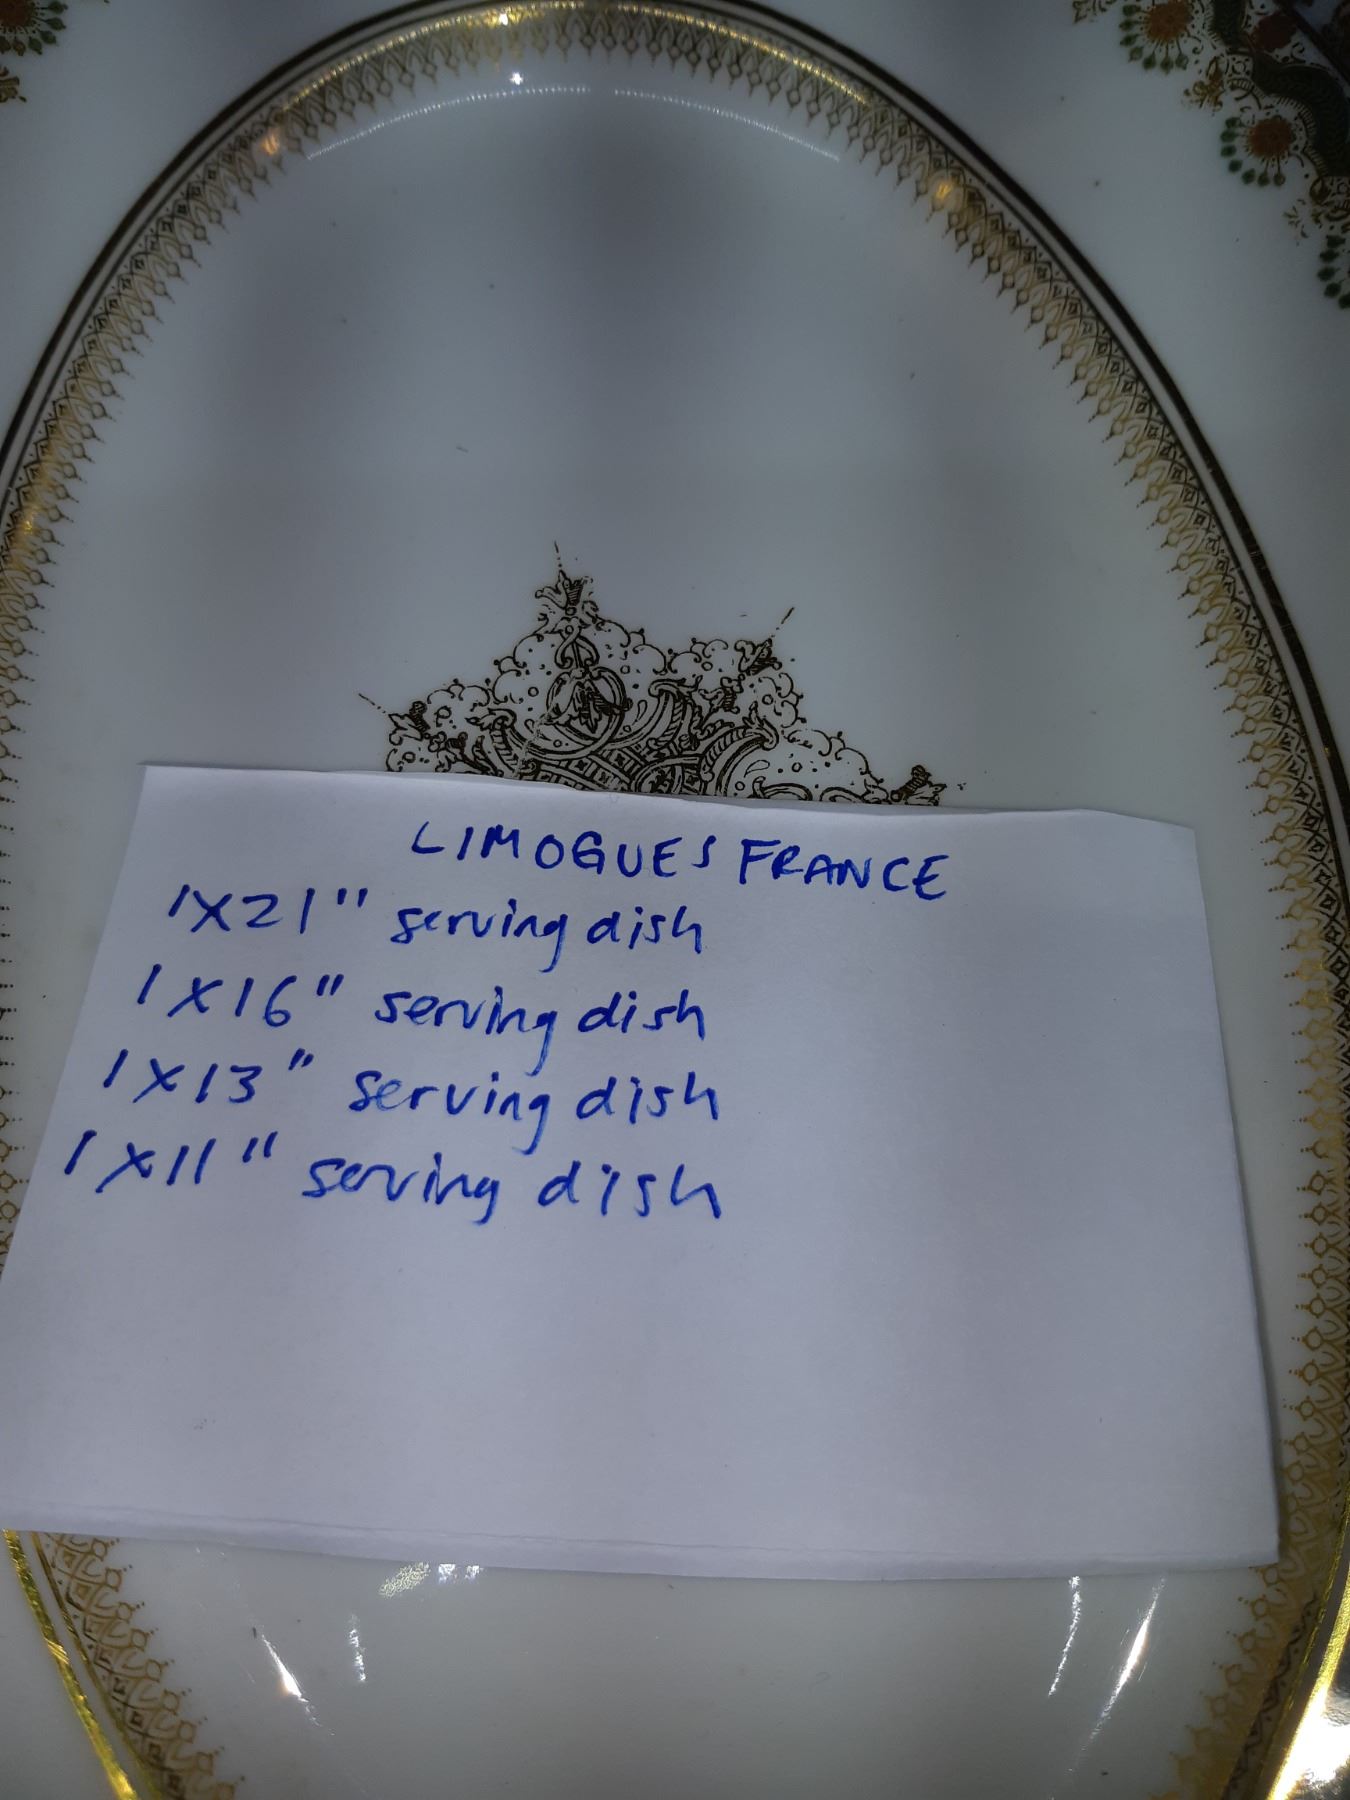 LIMOGUES FRANCE
1X21" serving dish
1X16" serving dish
1X13" serving dish
1X11" serving dish